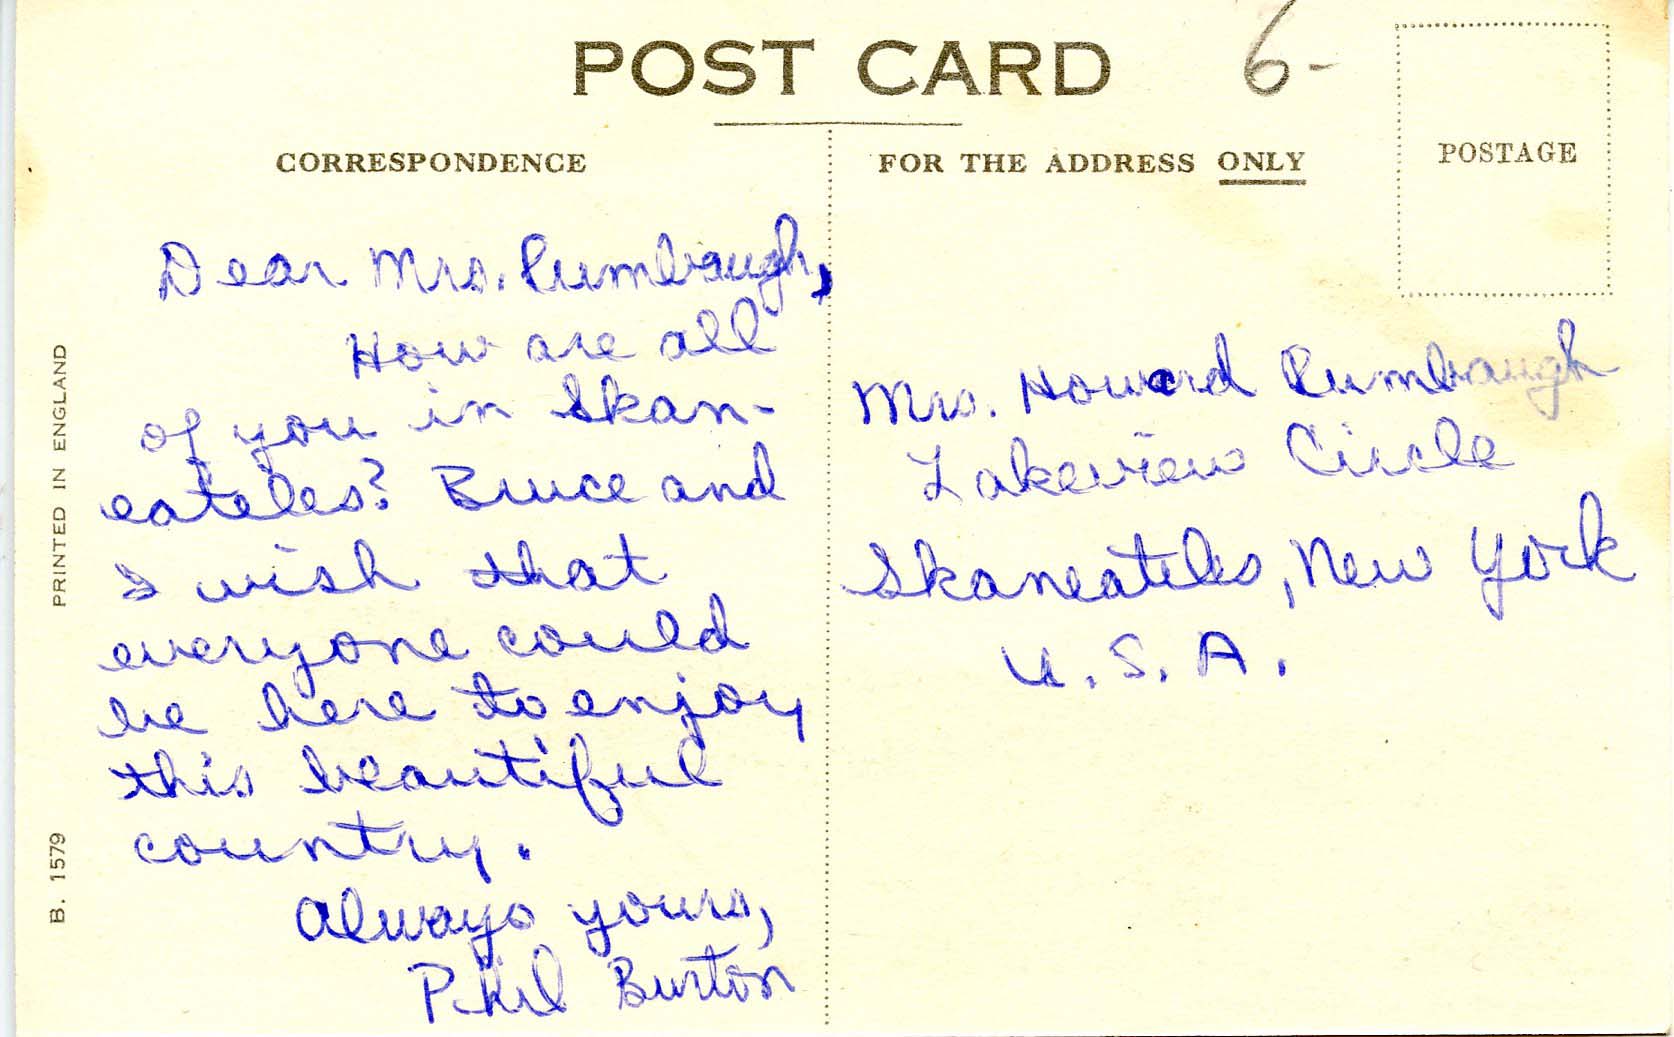 POST CARD
6-
CORRESPONDENCE
FOR THE ADDRESS ONLY
POSTAGE
Dear Mrs. Rumbaugh,
How are all
of you in Skan-
eateles? Bruce and
I wish that
everyone could
be here to enjoy
this beautiful
country.
Always yours,
Phil Burton
Mrs. Howard Rumbaugh
Lakeview Circle
Skaneateles, New York
U.S.A.
PRINTED IN ENGLAND
B. 1579